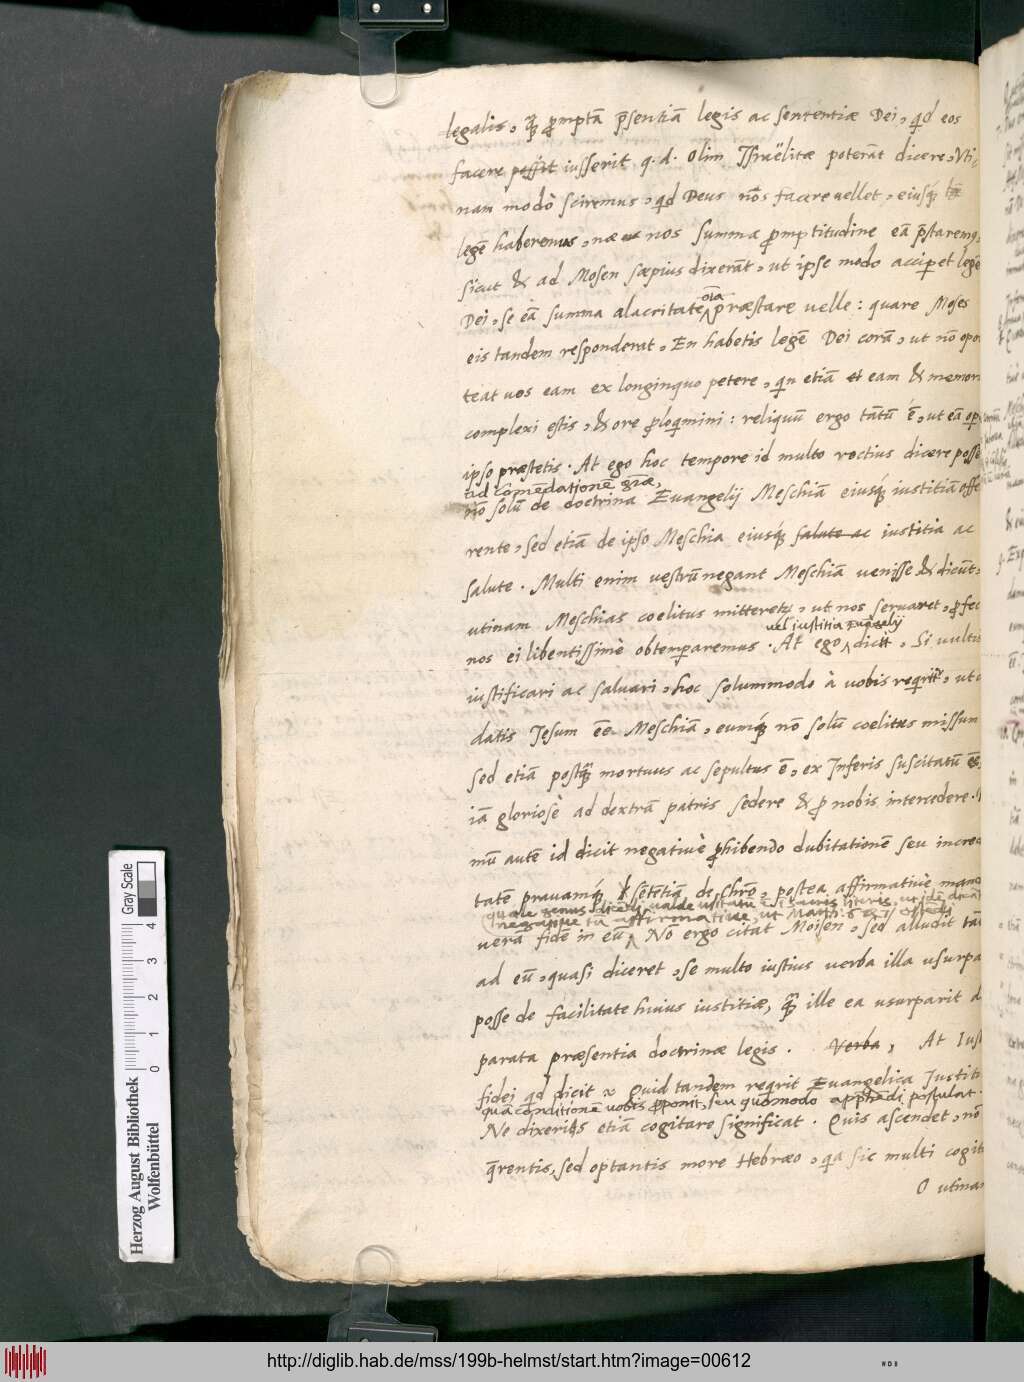 legalis, ꝗ̃ ꝓmptã p̃sentiã legis ac sententiæ Dei, qd eos
facere possit iusserit q. d. Olim Israëlitæ poterãt dicere, Vti-
nam modò sciremus, qd Deus nõs facere vellet, eiusq́
legẽ haberemus, næ nos summa ꝓmptitudine eã p̃staremꝰ,
sicut & ad Mosen sæpius dixerãt, ut ipse modo acciperet legẽ
Dei, se eã summa alacritate præstare velle: quare Moses
oĩa
eis tandem responderat, En habetis legẽ Dei corã, ut nõ opor
teat vos eam ex longinquo petere, qn etiã et eam & memori
complexi estis, & ore ꝓloqimini: reliquũ ergo tãtũ ẽ, ut eã
ipso præstetis. At ego hoc tempore id multo rectius dicere posse
ad comẽdationẽ grã,
nõ solũ de doctrina Euangelij Meschiã eiusq́ iustitiã offe
rente, sed etiã de ipso Meschia eiusq́ salute ac iustitia ac
salute. Multi enim vestrũ negant Meschiã venisse & dicũt,
utinam Meschias coelitus mitteretꝰ, ut nos servaret, ꝓfec
vel iustitia Euãgelij
nos ei libentissimè obtemꝑaremus. At ego dicit, Si vultis
iustificari ac salvari, hoc solummodo à vobis reqrit, ut
datis Iesum eẽ Meschiã, eumq́ nõ solũ coelitus missum
sed etiã postq̃ mortuus ac sepultus ẽ, ex Inferis suscitatũ eẽ,
iã gloriosè ad dextrã patris sedere & ꝓ nobis intercedere.
mũ autẽ id dicit negativè ꝓhibendo dubitationẽ seu incredu
tatẽ pravamq́ sẽtẽtiã de chrõ, postea affirmativè mand
quale genus dicẽdi valde usitatũ ẽ ĩ sacris literis, ut idẽ dicãt
negative tũ affirmative, ut Matth. 6
verã fidẽ in eũ. Nõ ergo citat Moisen, sed alludit tãt
ad eũ, quasi diceret, se multo iustius verba illa usurpa
posse de facilitate huius iustitiæ, q̃ ille ea usurparit d
parata præsentia doctrinæ legis. Verba, At Iust
fidei qd dicit Quid tandem reqrit Euangelica Iustiti
quã conditionẽ vobis ꝓponit, seu quõmodo apprẽhẽdi postulat.
Ne dixeritis etiã cogitare significat. Quis ascendet, nõ
q̃rentis, sed optantis more Hebræo, qa sic multi cogit
O utinam
Herzog August Bibliothek
Wolfenbüttel
Gray Scale
0 1 2 3 4
http://diglib.hab.de/mss/199b-helmst/start.htm?image=00612